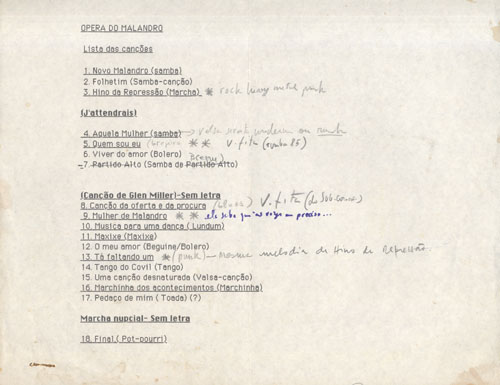 OPERA DO MALANDRO
Lista das canções
1. Novo Malandro (samba)
2. Folhetim (Samba-canção)
3. Hino da Repressão (Marcha) * rock heavy metal punk
(J'attendrais)
4. Aquela Mulher (samba) → valsa
5. Quem sou eu * * V. fita (samba 85)
6. Viver do amor (Bolero)
7. Partido Alto (Samba de Partido Alto) Breque
(Canção de Glen Miller)-Sem letra
8. Canção da oferta e da procura (blues) V. fita
9. Mulher de Malandro * *
10. Musica para uma dança ( Lundum)
11. Maxixe (Maxixe)
12. O meu amor (Beguine/Bolero)
13. Tá faltando um * (punk) → mesma melodia do Hino da Repressão
14. Tango do Covil (Tango)
15. Uma canção desnaturada (Valsa-canção)
16. Marchinha dos acontecimentos (Marchinha)
17. Pedaço de mim ( Toada) (?)
Marcha nupcial- Sem letra
18. Final ( Pot-pourri)